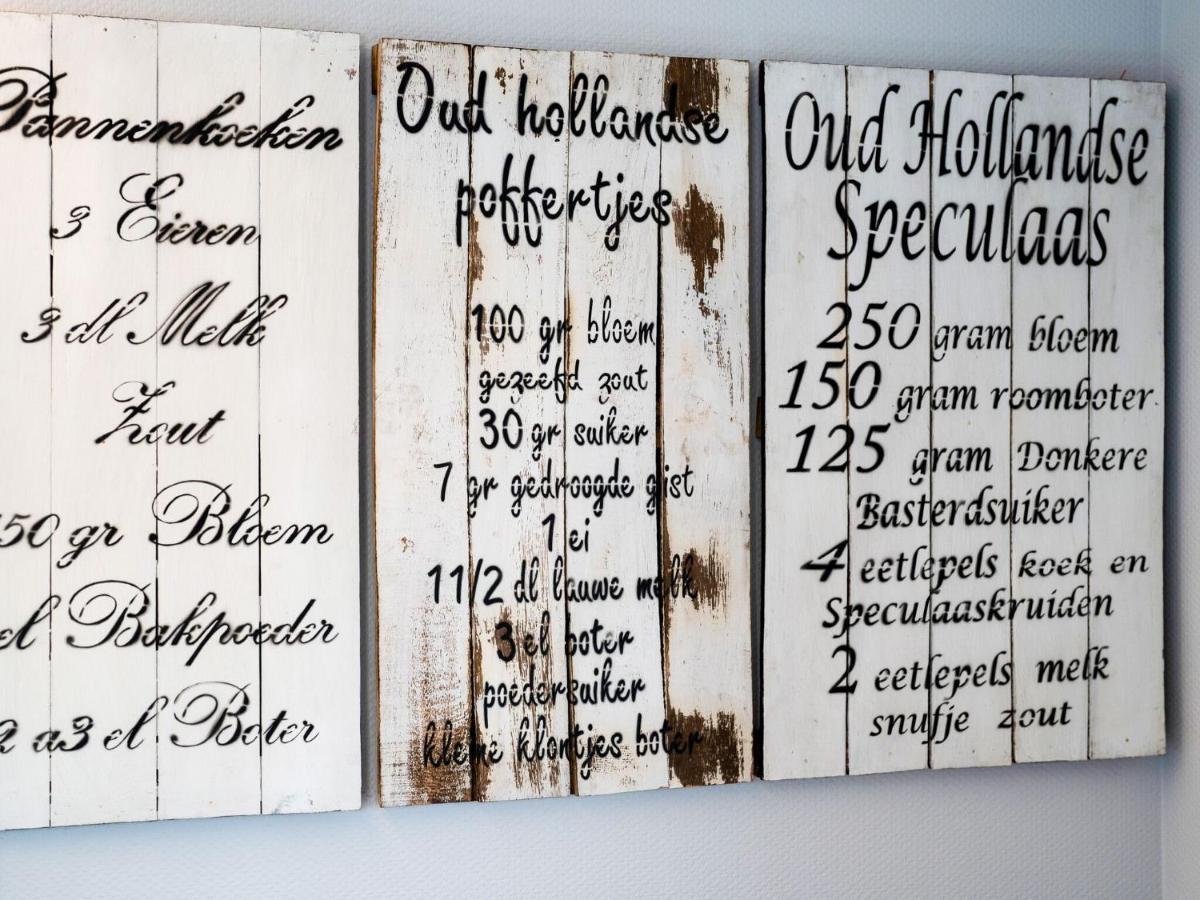 Pannenkoeken
3 Eieren
3 dl Melk
Zout
50 gr Bloem
el Bakpoeder
2 a3 el Boter
Oud hollandse
poffertjes
100 gr bloem
gezeefd zout
30 gr suiker
7 gr gedroogde gist
1 ei
11/2 dl lauwe melk
3 el boter
poedersuiker
kleine klontjes boter
Oud Hollandse
Speculaas
250 gram bloem
150 gram roomboter
125 gram Donkere
Basterdsuiker
4 eetlepels koek en
Speculaaskruiden
2 eetlepels melk
snufje zout